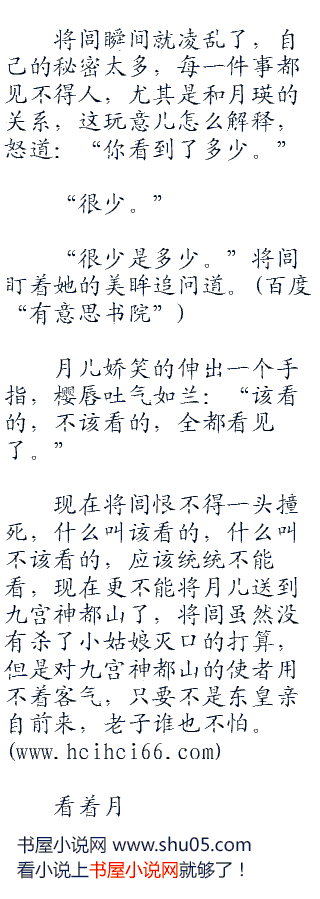 将闾瞬间就凌乱了，自
己的秘密太多，每一件事都
见不得人，尤其是和月瑛的
关系，这玩意儿怎么解释，
怒道：“你看到了多少。”
“很少。”
“很少是多少。”将闾
盯着她的美眸追问道。(百度
“有意思书院”)
月儿娇笑的伸出一个手
指，樱唇吐气如兰：“该看
的，不该看的，全都看见
了。”
现在将闾恨不得一头撞
死，什么叫该看的，什么叫
不该看的，应该统统不能
看，现在更不能将月儿送到
九宫神都山了，将闾虽然没
有杀了小姑娘灭口的打算，
但是对九宫神都山的使者用
不着客气，只要不是东皇亲
自前来，老子谁也不怕。
(www.hcihci66.com)
看着月
书屋小说网 www.shu05.com
看小说上书屋小说网就够了！